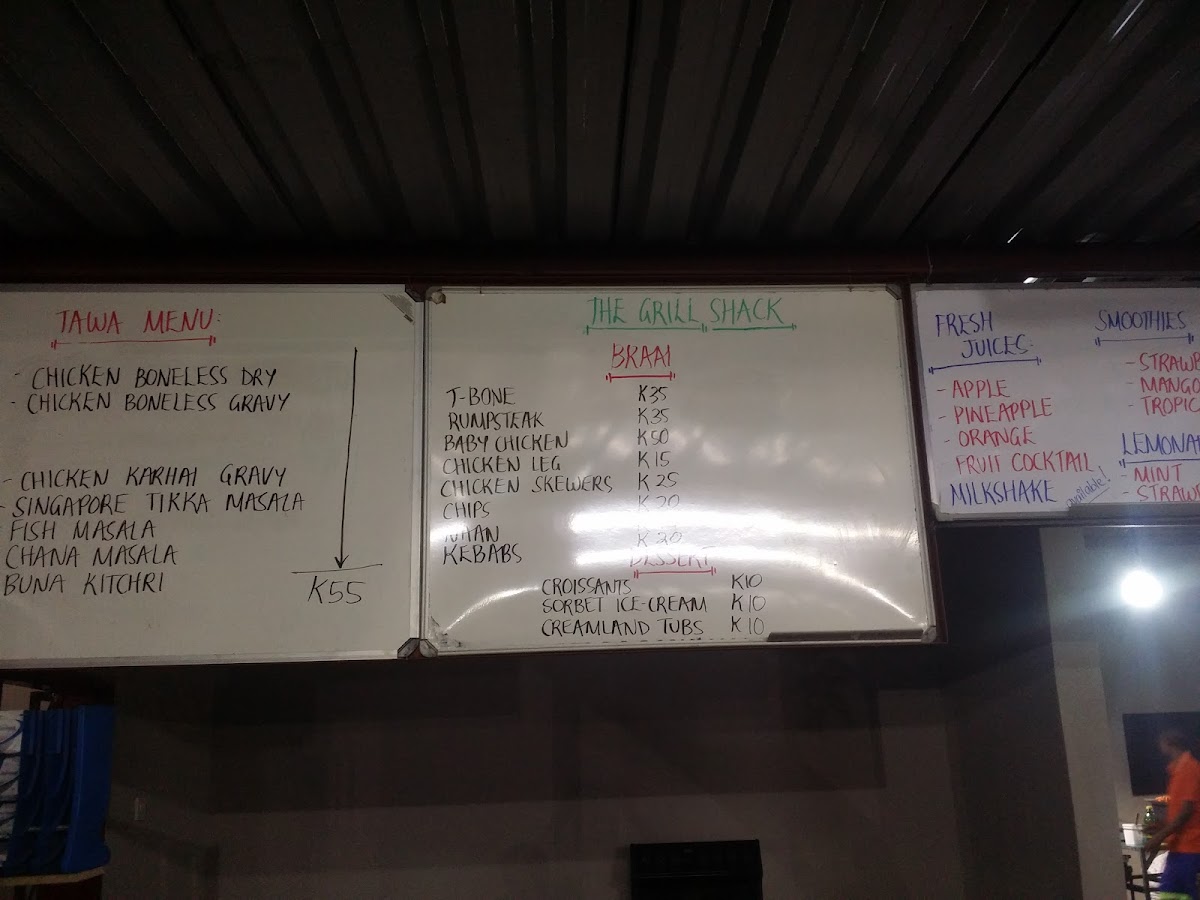 TAWA MENU:
- CHICKEN BONELESS DRY
- CHICKEN BONELESS GRAVY
- CHICKEN KARHAI GRAVY
- SINGAPORE TIKKA MASALA
FISH MASALA
CHANA MASALA
BUNA KITCHRI
K55
THE GRILL SHACK
BRAAI
T-BONE K35
RUMPSTEAK K35
BABY CHICKEN K50
CHICKEN LEG K15
CHICKEN SKEWERS K25
CHIPS K20
NAAN K20
KEBABS
DESSERT
CROISSANTS K10
SORBET ICE-CREAM K10
CREAMLAND TUBS K10
FRESH
JUICES:
- APPLE
- PINEAPPLE
- ORANGE
FRUIT COCKTAIL
MILKSHAKE available!
SMOOTHIES
- STRAWB
- MANGO
- TROPIC
LEMONA
- MINT
- STRAWB